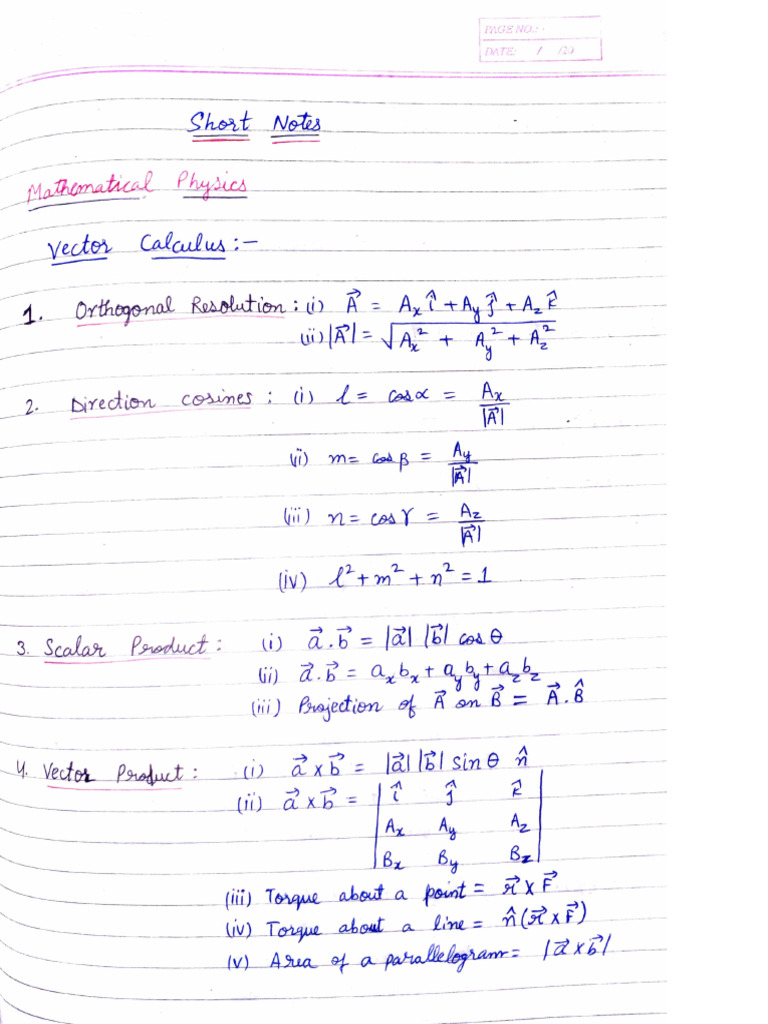 PAGE NO.:
DATE: / /20
Short Notes
Mathematical Physics
Vector Calculus:-
1. Orthogonal Resolution: (i) A⃗ = Aₓ î + Aᵧ ĵ + A_z k̂
(ii) |A⃗| = √(Aₓ² + Aᵧ² + A_z²)
2. Direction cosines : (i) l = cosα = Aₓ/|A⃗|
(ii) m = cosβ = Aᵧ/|A⃗|
(iii) n = cosγ = A_z/|A⃗|
(iv) l² + m² + n² = 1
3. Scalar Product : (i) a⃗.b⃗ = |a⃗| |b⃗| cosθ
(ii) a⃗.b⃗ = aₓbₓ + aᵧbᵧ + a_zb_z
(iii) Projection of A⃗ on B⃗ = A⃗.B̂
4. Vector Product : (i) a⃗ × b⃗ = |a⃗| |b⃗| sinθ n̂
(ii) a⃗ × b⃗ = | î ĵ k̂ |
| Aₓ Aᵧ A_z |
| Bₓ Bᵧ B_z |
(iii) Torque about a point = r⃗ × F⃗
(iv) Torque about a line = n̂(r⃗ × F⃗)
(v) Area of a parallelogram = |a⃗ × b⃗|